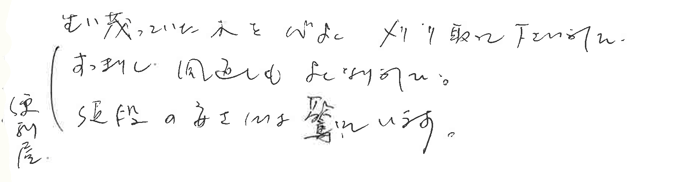 生い茂っていた木を ぶじに 刈り取って下さいました。
すっきりし 風通しも よくなりました。
値段の安さには驚いています。
便利屋